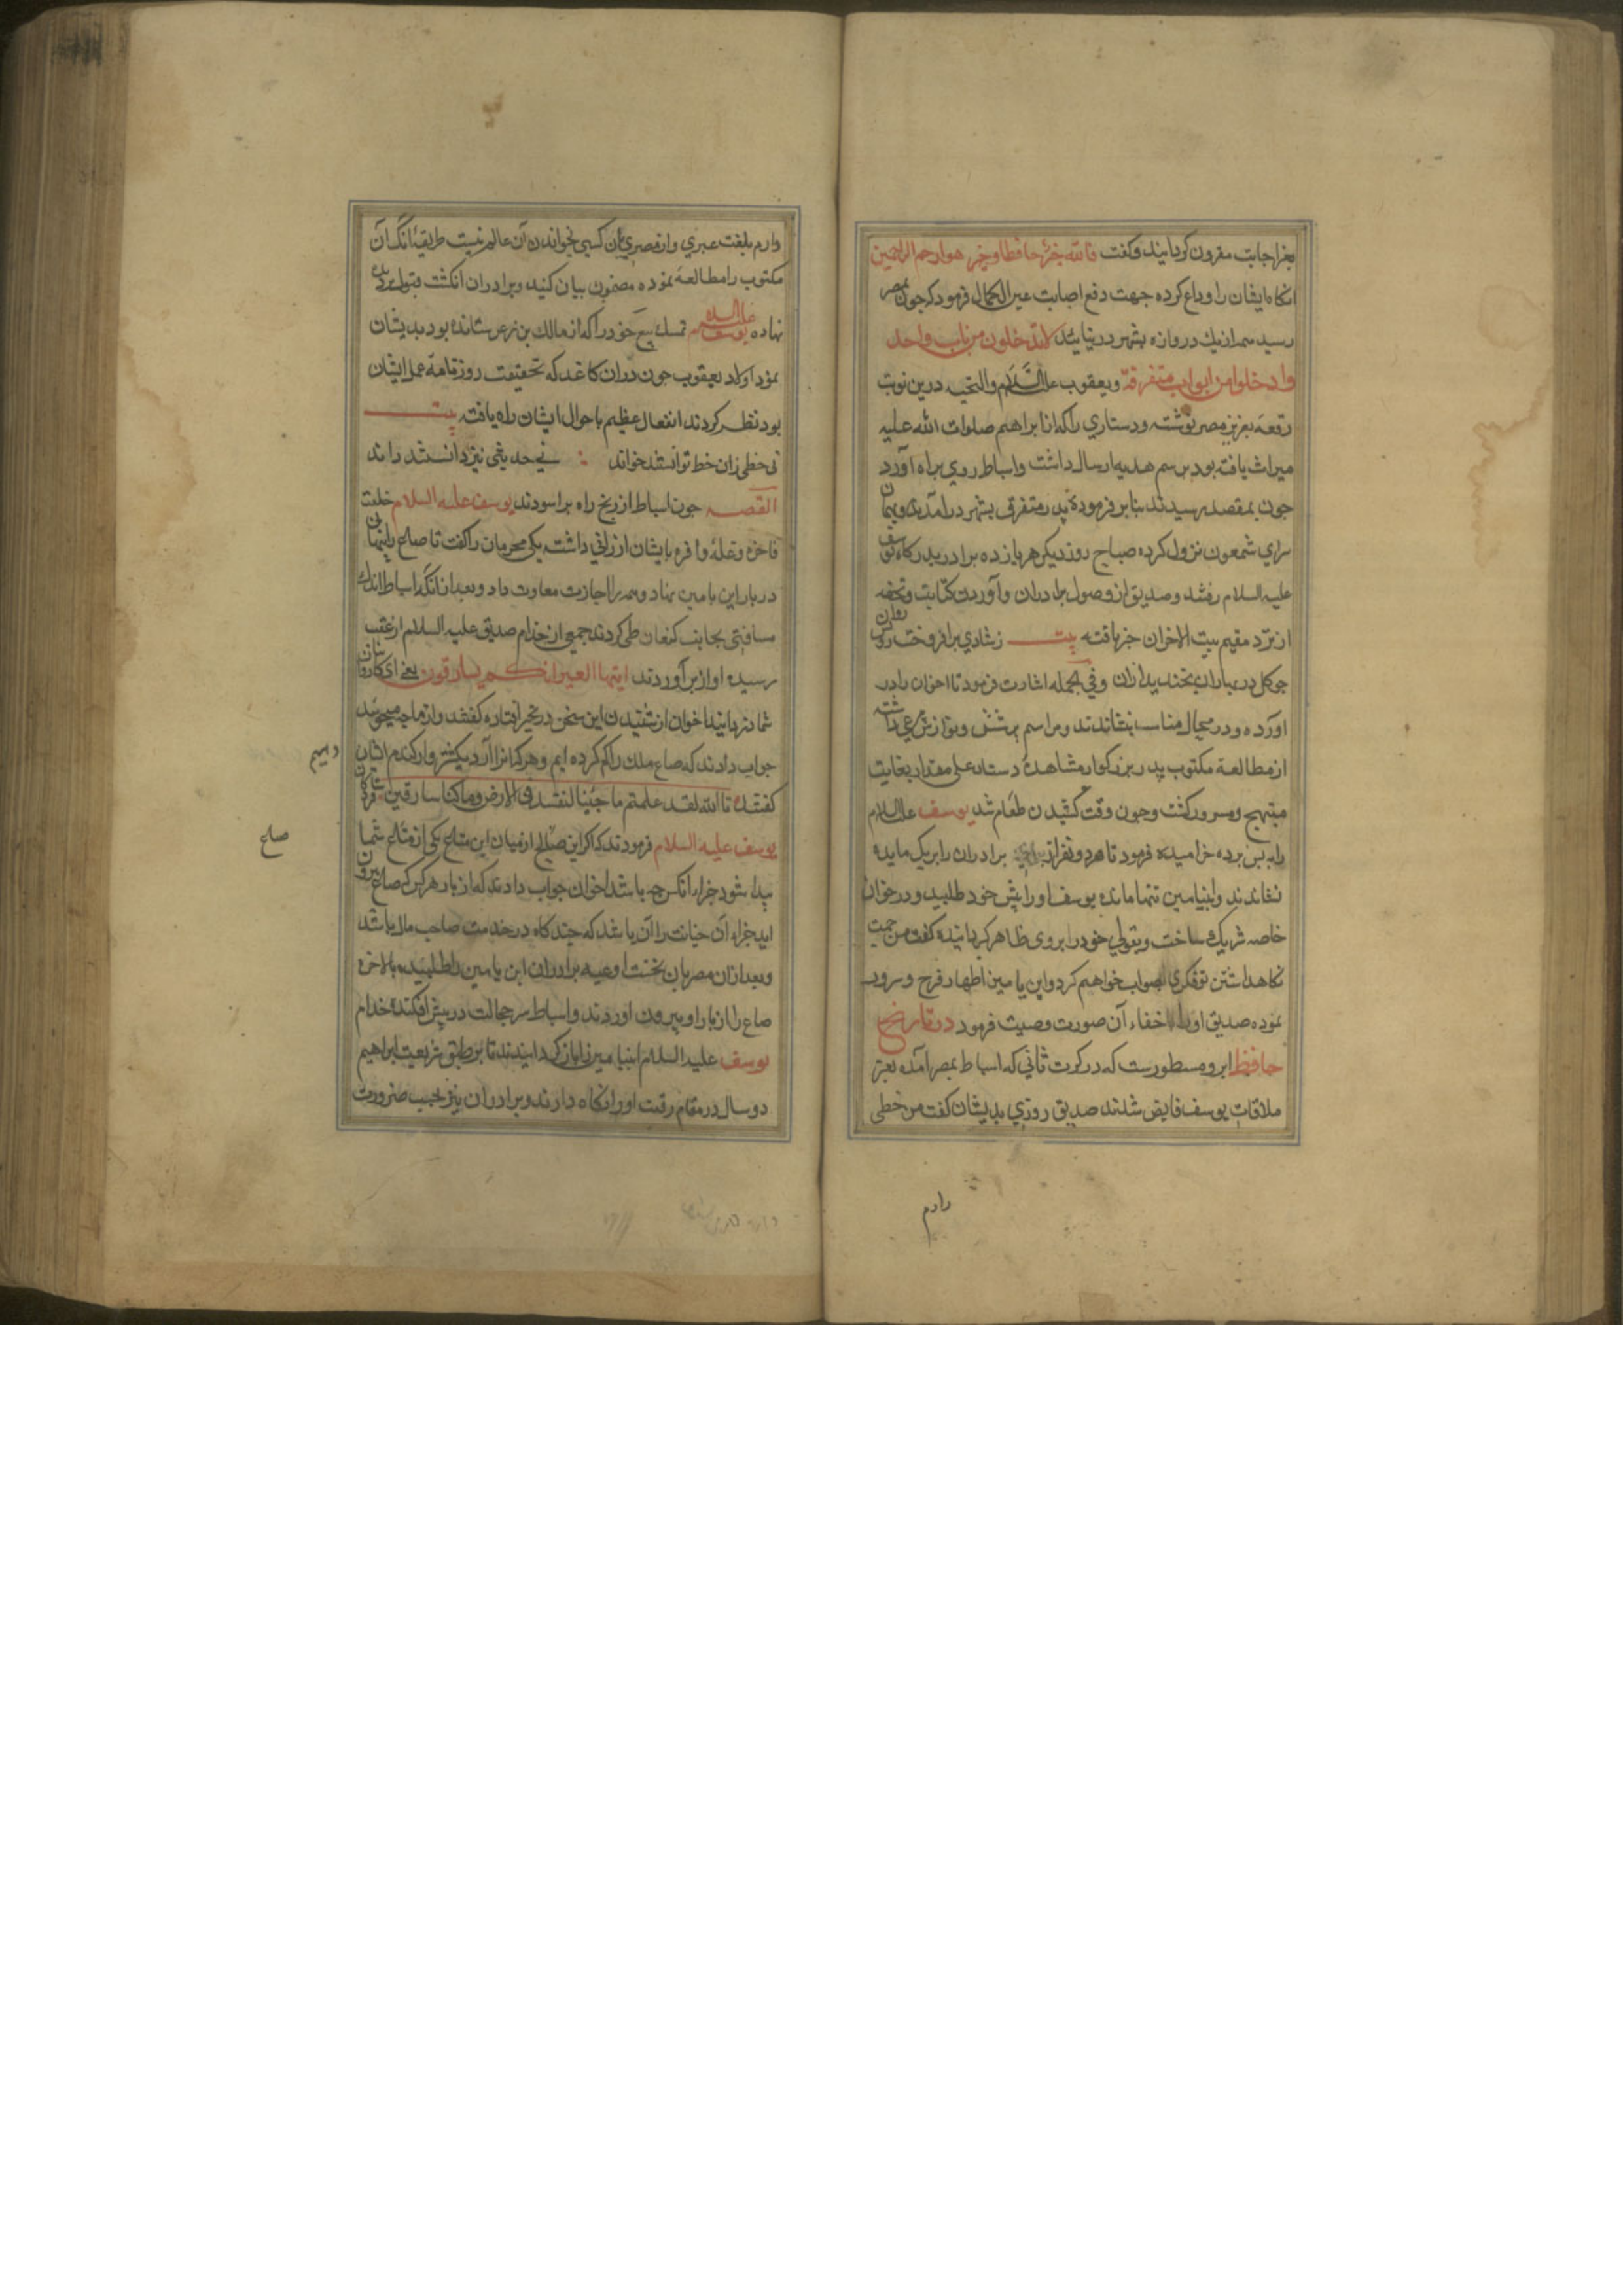 بعز اجابت مقرون کردانید وکفت فالله خیر حافظا وهو ارحم الراحمین
انکاه ایشان را وداع کرده جهت دفع اصابت عین الکمال فرمود که چون بمصر
رسید همه از یک دروازه بشهر در نیایید لا تدخلوا من باب واحد
وادخلوا من ابواب متفرقة ویعقوب علیه السلام والتحیه درین نوبت
رقعه بعزیز مصر نوشته ودستاری راکه از ابراهیم صلوات الله علیه
میراث یافته بود برسم هدیه ارسال داشت واسباط روی براه آورد
جون بمقصد رسیدند بنابر فرمودۀ پدر متفرق بشهر درآمدند
سرای شمعون نزول کرده صباح روز دیکر هر یازده برادر بدرکاه یوسف
علیه السلام رفتند وصدیق از وصول برادران وآوردن کتابت وتحفه
از نزد مقیم بیت الاحزان خبر یافته بیت زشادی برافروخت روی
جو کل در بهاران بخندید ازان وفی الجمله اشارت فرمود تا اخوان را در
آورده ودر محال مناسب بنشاندند ومراسم پرسش ونوازش مرعی داشته
از مطالعه مکتوب پدر بزرکوار ومشاهدۀ دستار علی مقدار بغایت
مبتهج ومسرور کشت وجون وقت کشیدن طعام شد یوسف علیه السلام
به پس برده خرامیده فرمود تا هر دو نفر از برادران را بر یک مایده
نشاندند وابنیامین تنها مانده یوسف اورا پیش خود طلبید ودر خوان
خاصه شریک ساخت وبقولی خود را بروی ظاهر کردانیده کفت من جهت
نکاهداشتن تو فکری بصواب خواهم کرد وابن یامین اظهار فرح وسرور
نموده صدیق اورا باخفاء آن صورت وصیت فرمود در تاریخ
حافظ ابرو مسطورست که در کرت ثانی که اسباط بمصر آمده بعز
ملاقات یوسف فایض شدند صدیق روزی بدیشان کفت من خطی
دارم
دارم بلغت عبری واز مصریان کسی بخواندن آن عالم نیست طریقه انک آن
مکتوب را مطالعه نموده مضمون بیان کنید وبرادران انکشت قبول بر دیده
نهاده یوسف علیه السلام تمسک بیع خود را که از مالک بن زعر ستانده بود بدیشان
نمود اولاد یعقوب جون دران کاغد که بحقیقت روزنامۀ عمل ایشان
بود نظر کردند انفعال عظیم باحوال ایشان راه یافت بیت
نی خطی زان خط توانستند خواند نی حدیثی نیز دانستند راند
القصه جون اسباط از رنج راه براسودند یوسف علیه السلام خلعت
فاخره وغلۀ وافره بایشان ارزانی داشت یکی محرمان راکفت تا صاع را پنهانی
در بار ابن یامین نهاد وهمه را اجازت معاودت داد وبعد ازانکه اسباط اندک
مسافتی بجانب کنعان طی کردند جمعی از خدام صدیق علیه السلام از عقب
رسیده آواز برآوردند ایتها العیر انکم لسارقون یعنی ای کاروانیان
شما دزدانید اخوان از شنیدن این سخن در تحیر افتاده کفتند واز ما چه میجویید
جواب دادند که صاع ملک را کم کرده ایم وهر کس آنرا آرد یکشتروار کندم ایشان
دهیم
کفتند تالله لقد علمتم ما جئنا لنفسد فی الارض وما کنا سارقین
یوسف علیه السلام فرمودند که اکر این صاع از میان این متاع یکی از متاع شما
صاع
پیدا شود جزاء آنکس جه باشد اخوان جواب دادند که از بار هرکس که صاع بیرون
اید جزاء آن خیانت را آن باشد که جند کاه در خدمت صاحب مال باشد
وبعد ازان مصریان نخست اوعیه برادران ابن یامین را طلبیده بالاخره
صاع را از بار او بیرون اوردند واسباط سر خجالت در پیش افکنده خدام
یوسف علیه السلام ابنیامین را باز کردانیدند تا بر طبق شریعت ابراهیم
دو سال در مقام رقیت اورا نکاه دارند وبرادران نیز بحسب ضرورت